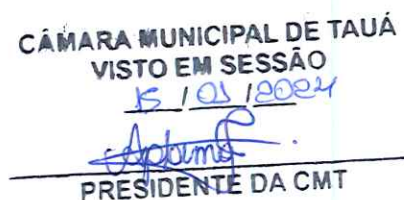 CÂMARA MUNICIPAL DE TAUÁ
VISTO EM SESSÃO
15 / 01 / 2024
PRESIDENTE DA CMT